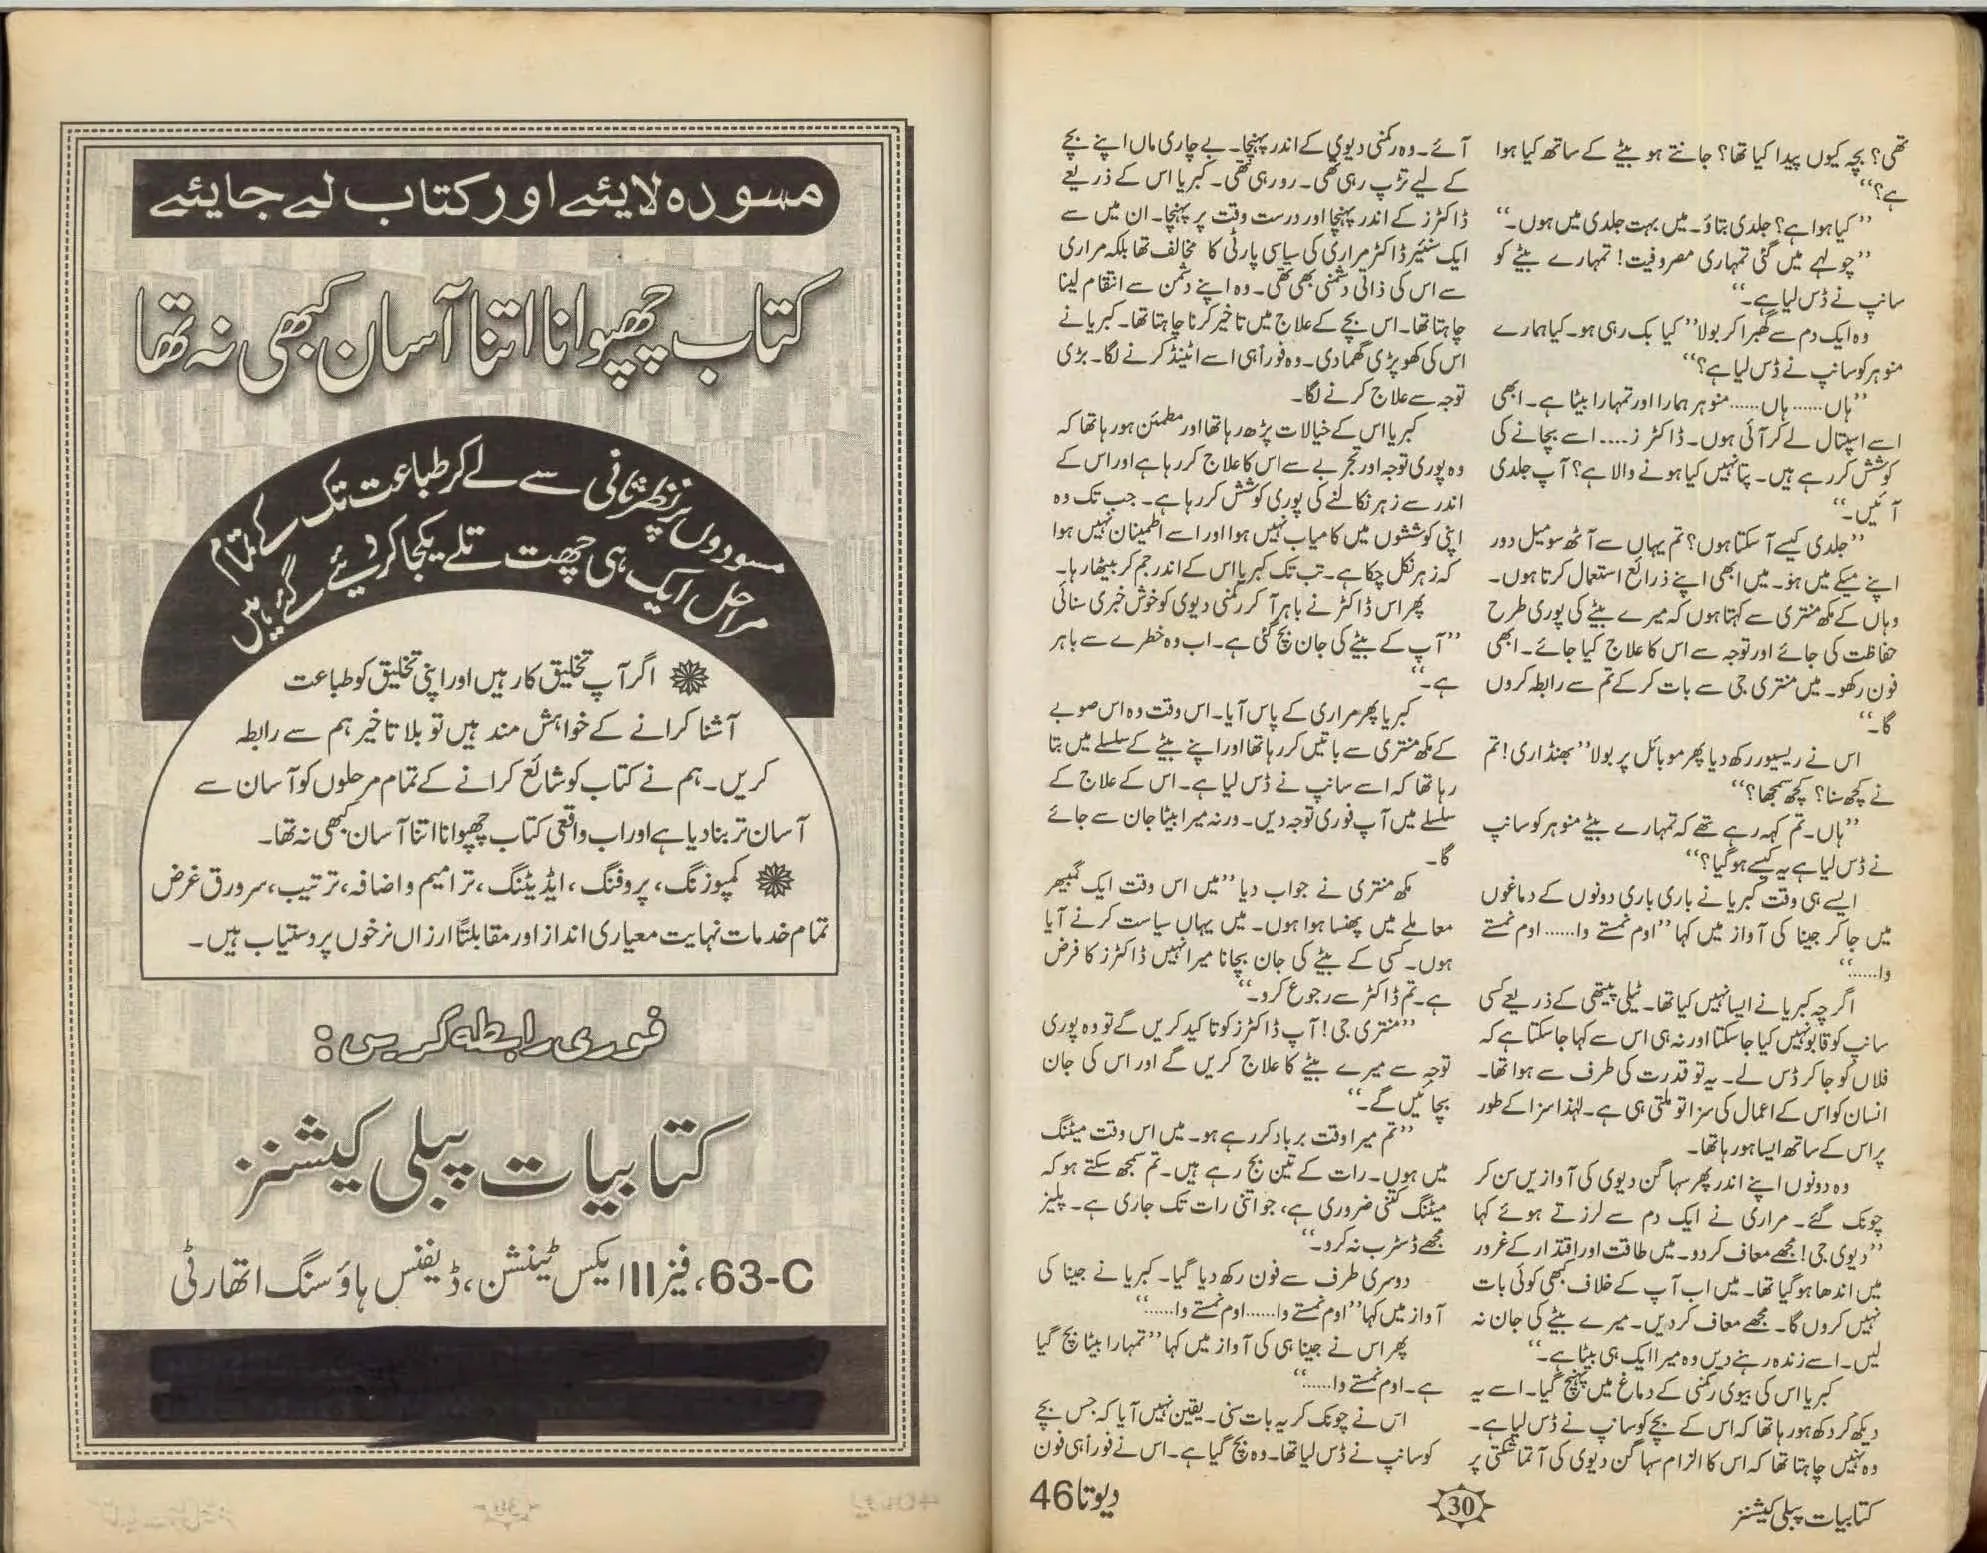 تھی؟ بچہ کیوں پیدا کیا تھا؟ جانتے ہو بیٹے کے ساتھ کیا ہوا
ہے؟‘‘
’’کیا ہوا ہے؟ جلدی بتاؤ۔ میں بہت جلدی میں ہوں۔‘‘
’’چولہے میں گئی تمہاری مصروفیت! تمہارے بیٹے کو
سانپ نے ڈس لیا ہے۔‘‘
وہ ایک دم سے گھبرا کر بولا ’’کیا بک رہی ہو۔ کیا ہمارے
منوہر کو سانپ نے ڈس لیا ہے؟‘‘
’’ہاں...... ہاں...... منوہر ہمارا اور تمہارا بیٹا ہے۔ ابھی
اسے اسپتال لے کر آئی ہوں۔ ڈاکٹرز.... اسے بچانے کی
کوشش کر رہے ہیں۔ پتا نہیں کیا ہونے والا ہے؟ آپ جلدی
آئیں۔‘‘
’’جلدی کیسے آ سکتا ہوں؟ تم یہاں سے آٹھ سو میل دور
اپنے میکے میں ہو۔ میں ابھی اپنے ذرائع استعمال کرتا ہوں۔
وہاں کے مکھ منتری سے کہتا ہوں کہ میرے بیٹے کی پوری طرح
حفاظت کی جائے اور توجہ سے اس کا علاج کیا جائے۔ ابھی
فون رکھو۔ میں منتری جی سے بات کر کے تم سے رابطہ کروں
گا۔‘‘
اس نے ریسیور رکھ دیا پھر موبائل پر بولا ’’بھنڈاری! تم
نے کچھ سنا؟ کچھ سمجھا؟‘‘
’’ہاں۔ تم کہہ رہے تھے کہ تمہارے بیٹے منوہر کو سانپ
نے ڈس لیا ہے یہ کیسے ہو گیا؟‘‘
ایسے ہی وقت کبریا نے باری باری دونوں کے دماغوں
میں جا کر جینا کی آواز میں کہا ’’اوم نمستے وا...... اوم نمستے
وا......‘‘
اگرچہ کبریا نے ایسا نہیں کیا تھا۔ ٹیلی پیتھی کے ذریعے کسی
سانپ کو قابو نہیں کیا جا سکتا اور نہ ہی اس سے کہا جا سکتا ہے کہ
فلاں کو جا کر ڈس لے۔ یہ تو قدرت کی طرف سے ہوا تھا۔
انسان کو اس کے اعمال کی سزا تو ملتی ہی ہے۔ لہٰذا سزا کے طور
پر اس کے ساتھ ایسا ہو رہا تھا۔
وہ دونوں اپنے اندر پھر سہاگن دیوی کی آوازیں سن کر
چونک گئے۔ مراری نے ایک دم سے لرزتے ہوئے کہا
’’دیوی جی! مجھے معاف کر دو۔ میں طاقت اور اقتدار کے غرور
میں اندھا ہو گیا تھا۔ میں اب آپ کے خلاف کبھی کوئی بات
نہیں کروں گا۔ مجھے معاف کر دیں۔ میرے بیٹے کی جان نہ
لیں۔ اسے زندہ رہنے دیں وہ میرا ایک ہی بیٹا ہے۔‘‘
کبریا اس کی بیوی رکمنی کے دماغ میں پہنچ گیا۔ اسے یہ
دیکھ کر دکھ ہو رہا تھا کہ اس کے بچے کو سانپ نے ڈس لیا ہے۔
وہ نہیں چاہتا تھا کہ اس کا الزام سہاگن دیوی کی آتما شکتی پر
آئے۔ وہ رکمنی دیوی کے اندر پہنچا۔ بے چاری ماں اپنے بچے
کے لیے تڑپ رہی تھی۔ رو رہی تھی۔ کبریا اس کے ذریعے
ڈاکٹرز کے اندر پہنچا اور درست وقت پر پہنچا۔ ان میں سے
ایک سنیئر ڈاکٹر مراری کی سیاسی پارٹی کا مخالف تھا بلکہ مراری
سے اس کی ذاتی دشمنی بھی تھی۔ وہ اپنے دشمن سے انتقام لینا
چاہتا تھا۔ اس بچے کے علاج میں تاخیر کرنا چاہتا تھا۔ کبریا نے
اس کی کھوپڑی گھما دی۔ وہ فوراً ہی اسے اٹینڈ کرنے لگا۔ بڑی
توجہ سے علاج کرنے لگا۔
کبریا اس کے خیالات پڑھ رہا تھا اور مطمئن ہو رہا تھا کہ
وہ پوری توجہ اور تجربے سے اس کا علاج کر رہا ہے اور اس کے
اندر سے زہر نکالنے کی پوری کوشش کر رہا ہے۔ جب تک وہ
اپنی کوششوں میں کامیاب نہیں ہوا اور اسے اطمینان نہیں ہوا
کہ زہر نکل چکا ہے۔ تب تک کبریا اس کے اندر جم کر بیٹھا رہا۔
پھر اس ڈاکٹر نے باہر آ کر رکمنی دیوی کو خوش خبری سنائی
’’آپ کے بیٹے کی جان بچ گئی ہے۔ اب وہ خطرے سے باہر
ہے۔‘‘
کبریا پھر مراری کے پاس آیا۔ اس وقت وہ اس صوبے
کے مکھ منتری سے باتیں کر رہا تھا اور اپنے بیٹے کے سلسلے میں بتا
رہا تھا کہ اسے سانپ نے ڈس لیا ہے۔ اس کے علاج کے
سلسلے میں آپ فوری توجہ دیں۔ ورنہ میرا بیٹا جان سے جائے
گا۔
مکھ منتری نے جواب دیا ’’میں اس وقت ایک گمبھیر
معاملے میں پھنسا ہوا ہوں۔ میں یہاں سیاست کرنے آیا
ہوں۔ کسی کے بیٹے کی جان بچانا میرا نہیں ڈاکٹرز کا فرض
ہے۔ تم ڈاکٹر سے رجوع کرو۔‘‘
’’منتری جی! آپ ڈاکٹرز کو تاکید کریں گے تو وہ پوری
توجہ سے میرے بیٹے کا علاج کریں گے اور اس کی جان
بچائیں گے۔‘‘
’’تم میرا وقت برباد کر رہے ہو۔ میں اس وقت میٹنگ
میں ہوں۔ رات کے تین بج رہے ہیں۔ تم سمجھ سکتے ہو کہ
میٹنگ کتنی ضروری ہے، جو اتنی رات تک جاری ہے۔ پلیز
مجھے ڈسٹرب نہ کرو۔‘‘
دوسری طرف سے فون رکھ دیا گیا۔ کبریا نے جینا کی
آواز میں کہا ’’اوم نمستے وا...... اوم نمستے وا......‘‘
پھر اس نے جینا ہی کی آواز میں کہا ’’تمہارا بیٹا بچ گیا
ہے۔ اوم نمستے وا......‘‘
اس نے چونک کر یہ بات سنی۔ یقین نہیں آیا کہ جس بچے
کو سانپ نے ڈس لیا تھا۔ وہ بچ گیا ہے۔ اس نے فوراً ہی فون
کتابیات پبلی کیشنز
30
دیوتا46
مسودہ لایئے اور کتاب لے جایئے
کتاب چھپوانا اتنا آسان کبھی نہ تھا
مسودوں پر نظر ثانی سے لے کر طباعت تک کے تمام
مراحل ایک ہی چھت تلے یکجا کر دیئے گئے ہیں
اگر آپ تخلیق کار ہیں اور اپنی تخلیق کو طباعت
آشنا کرانے کے خواہش مند ہیں تو بلا تاخیر ہم سے رابطہ
کریں۔ ہم نے کتاب کو شائع کرانے کے تمام مرحلوں کو آسان سے
آسان تر بنا دیا ہے اور اب واقعی کتاب چھپوانا اتنا آسان کبھی نہ تھا۔
کمپوزنگ، پروفنگ، ایڈیٹنگ، ترامیم و اضافہ، ترتیب، سرورق غرض
تمام خدمات نہایت معیاری انداز اور مقابلتاً ارزاں نرخوں پر دستیاب ہیں۔
فوری رابطہ کریں:
کتابیات پبلی کیشنز
63-C، فیز II ایکس ٹینشن، ڈیفنس ہاؤسنگ اتھارٹی